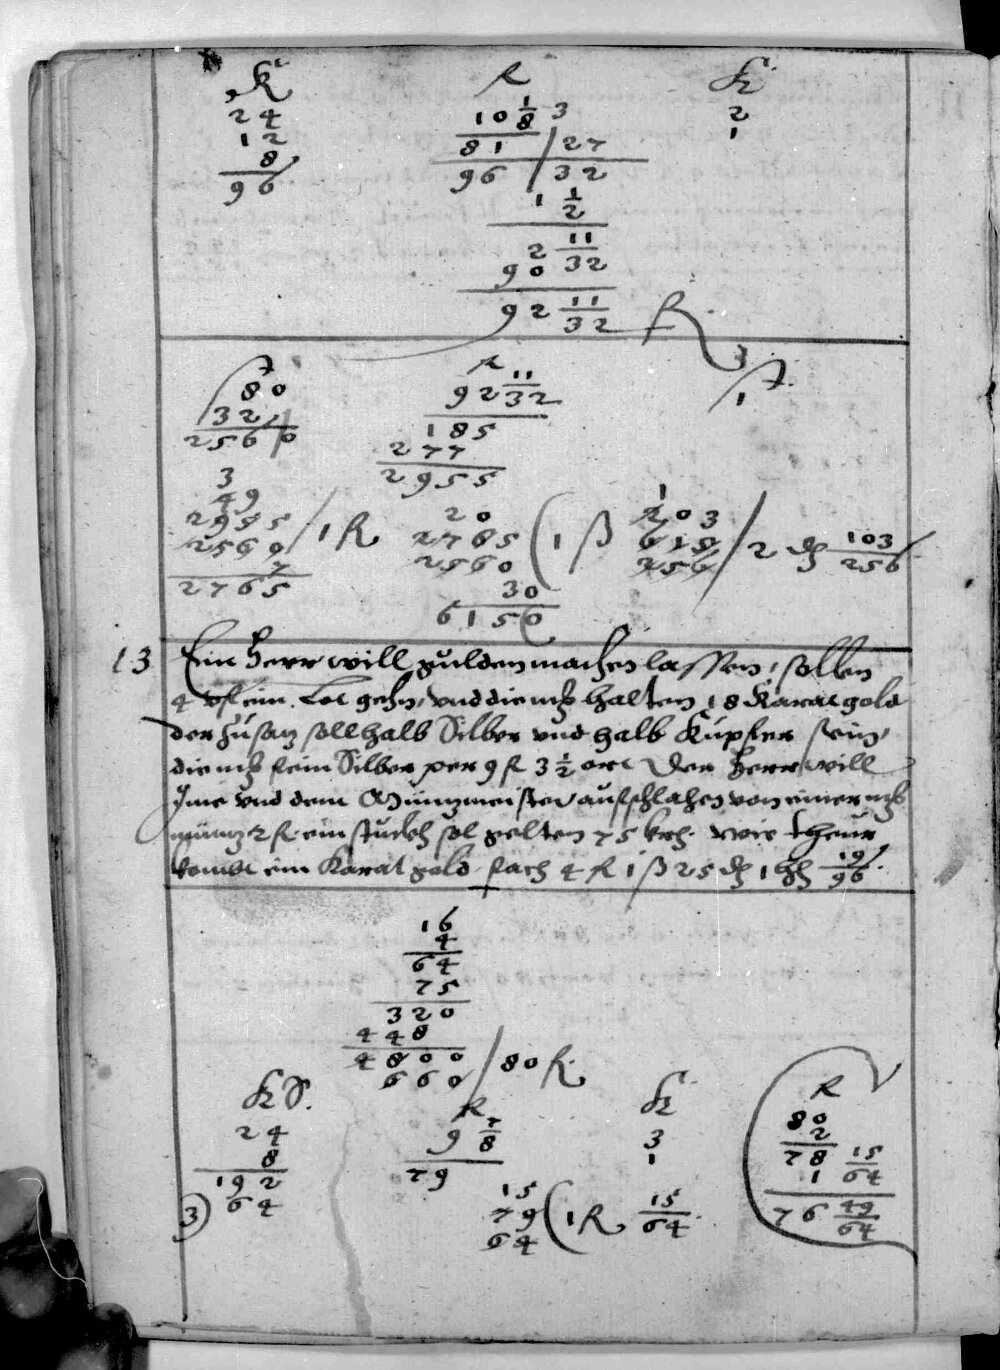 K
24
12
8
96
R
10 1/8 3
81 / 27
96 / 32
1 1/2
2 11/32
90
92 11/32 R
K
2
1
80
32
256/0
R
92 11/32
185
277
2955
1
3
49
2955
2560 / 1 R
7
2765
20
2765 ( 1 ß
2560
30
6150
1
203
615
256 / 2 ₰ 103/256
13 Ein Herr will gulden machen lassen, sollen
4 vf ein Lot gehn, vnd die mk halten 18 Karat gold
der zusatz soll halb Silber vnd halb Kupfer sein,
die mk fein Silber per 9 R 3 1/2 ort Der Herr will
Ime vnd dem Müntzmeister aufschlahen von einer mk
müntz 2 R ein stuckh sol gelten 75 krz. wie theur
kombt ein Karat gold fach 4 R 1 ß 25 ₰ 1 hl 19/96.
16
4
64
75
320
448
4800 / 80 R.
660
K S.
24
8
192
3) 64
R
9 7/8
79
15
79 ( 1 R 15/64.
64
K
3
1
R
80
2
78 15/64
1
76 49/64